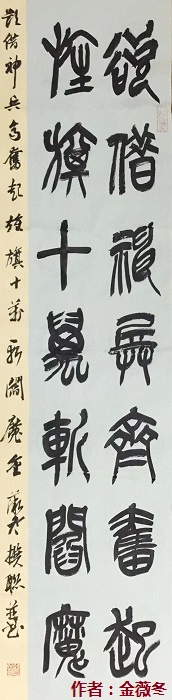 欲借神兵齊奮起
旌旗十萬斬閻魔
欲借神兵齊奮起旌旗十萬斬閻魔金薇冬撰聯並書
作者：金薇冬